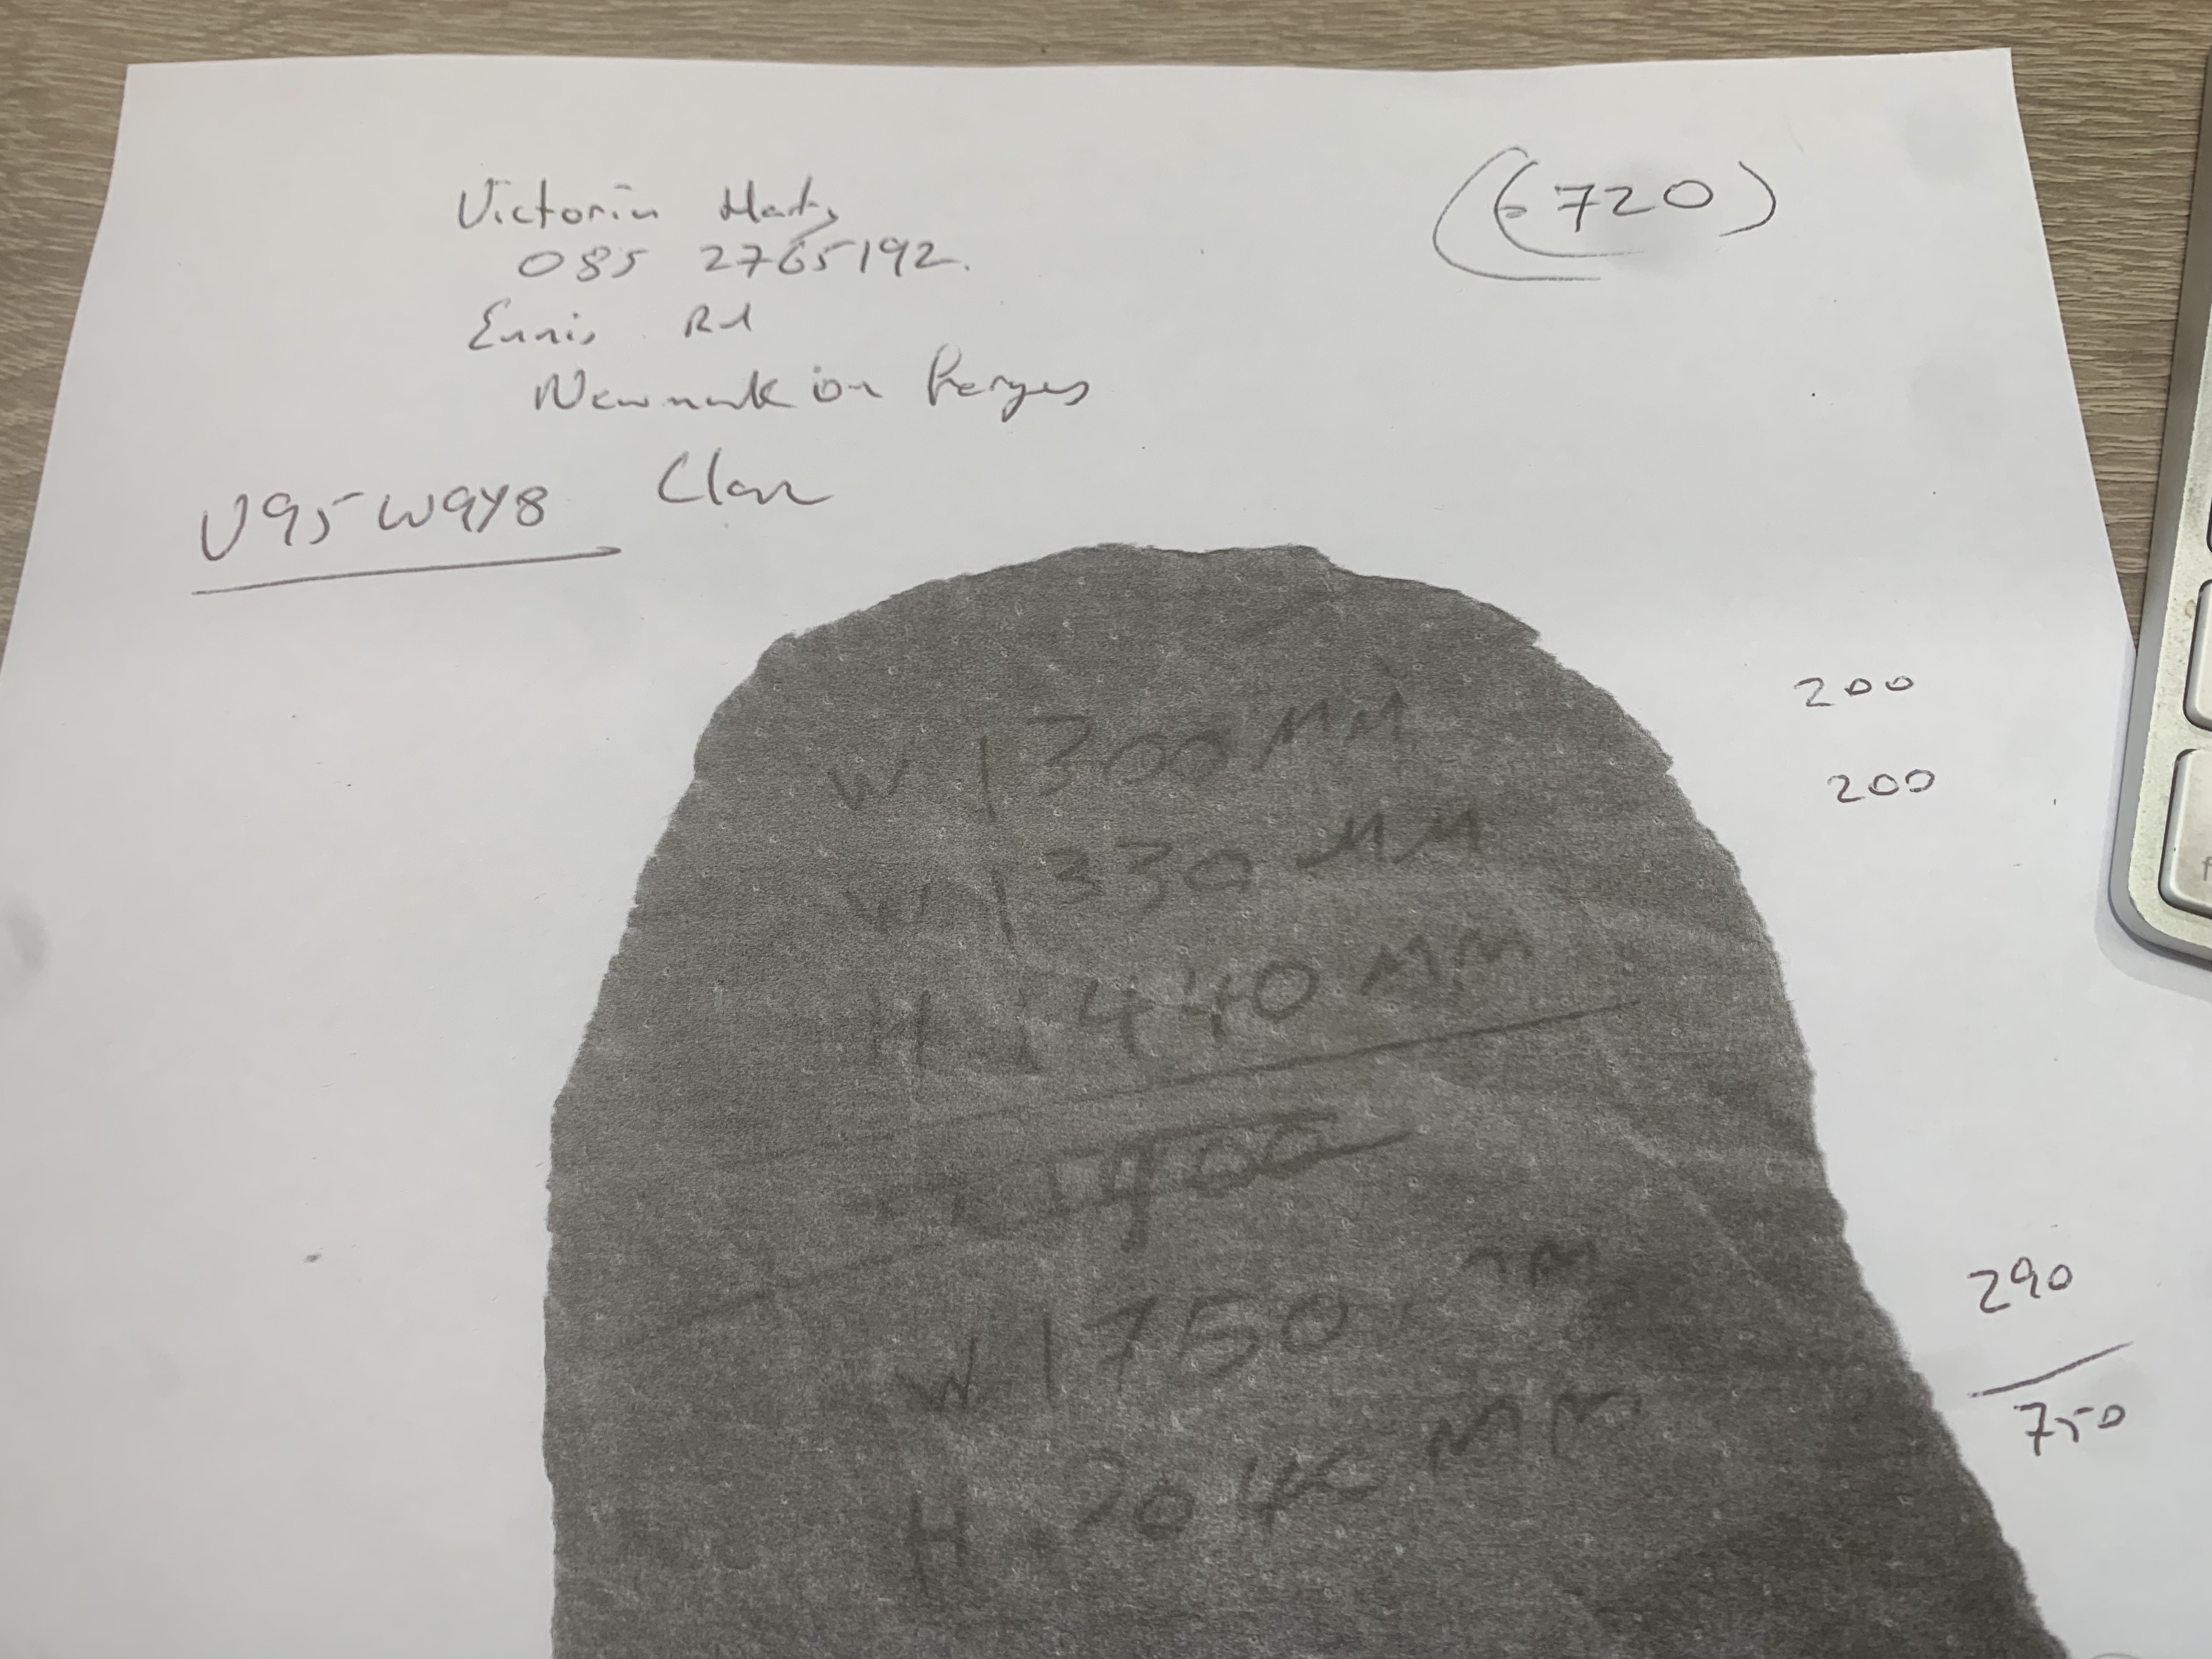 Victoria
085 2765192.
Ennis Rd
Newmark on Fergus
Clare
V95W9Y8
(6720)
200
200
W 1300 MM
W 1330 MM
H 1440 MM
W 1750 MM
H 2040 MM
290
750